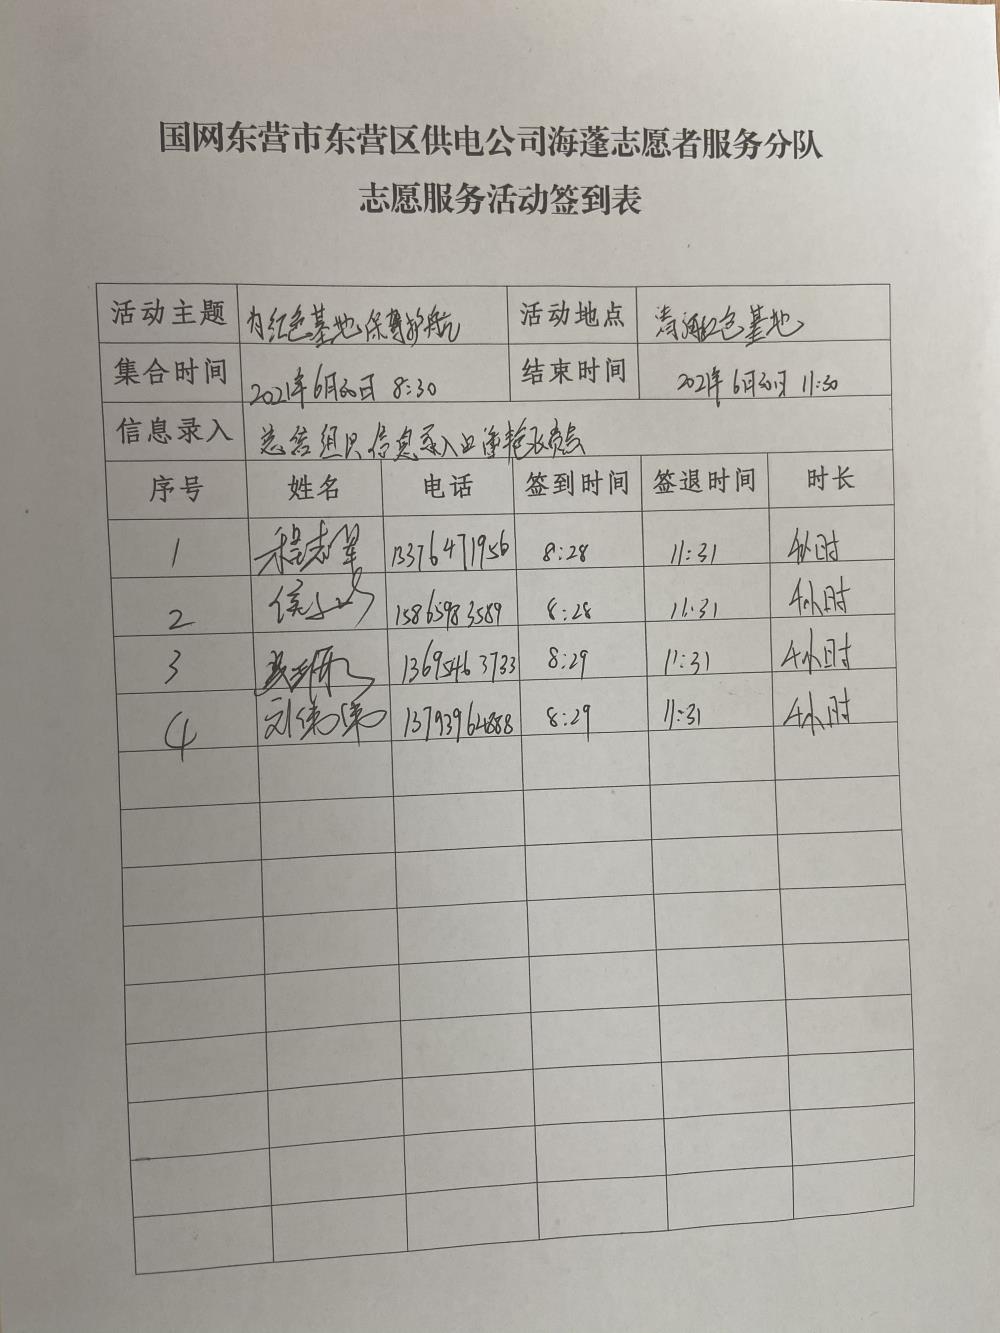 国网东营市东营区供电公司海蓬志愿者服务分队
志愿服务活动签到表
活动主题 为红色基地保驾护航 活动地点 清河红色基地
集合时间 2021年6月30日 8:30 结束时间 2021年6月30日 11:30
信息录入 志信组只信息录入
序号 姓名 电话 签到时间 签退时间 时长
1 程志军 13376471956 8:28 11:31 4小时
2 15865983589 8:28 11:31 4小时
3 13695463733 8:29 11:31 4小时
4 刘 13793964888 8:29 11:31 4小时